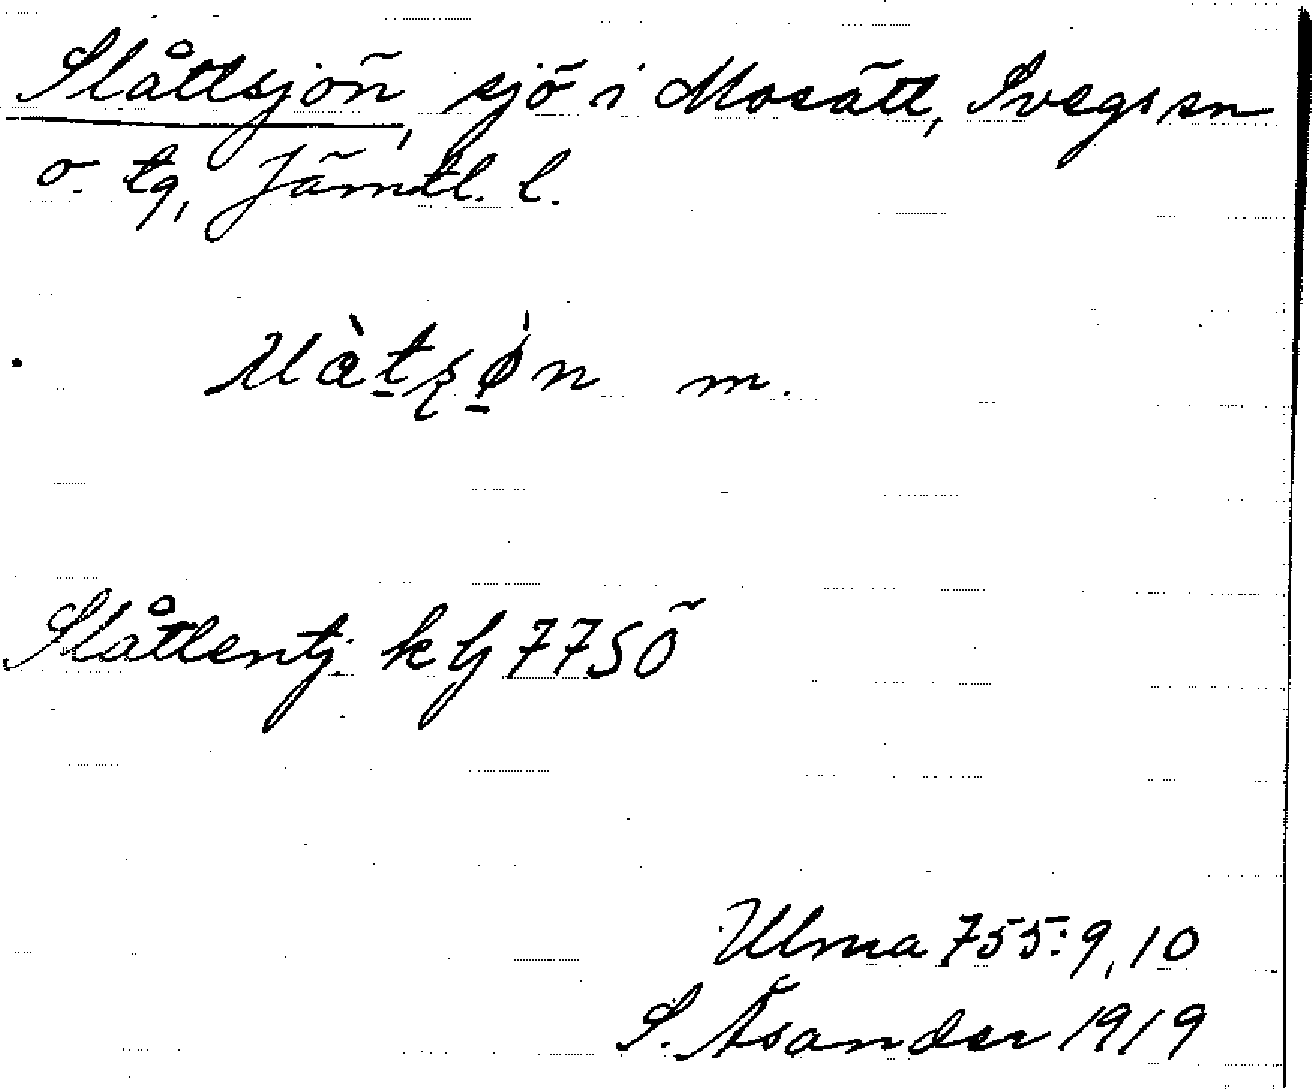 Slåttsjön, sjö i Mosätt, Svegs sn
o. tg, Jämtl. l.
m.
Slåttentj. k bj 77 SÖ
Ulma 755:9,10
S. Åsander 1919